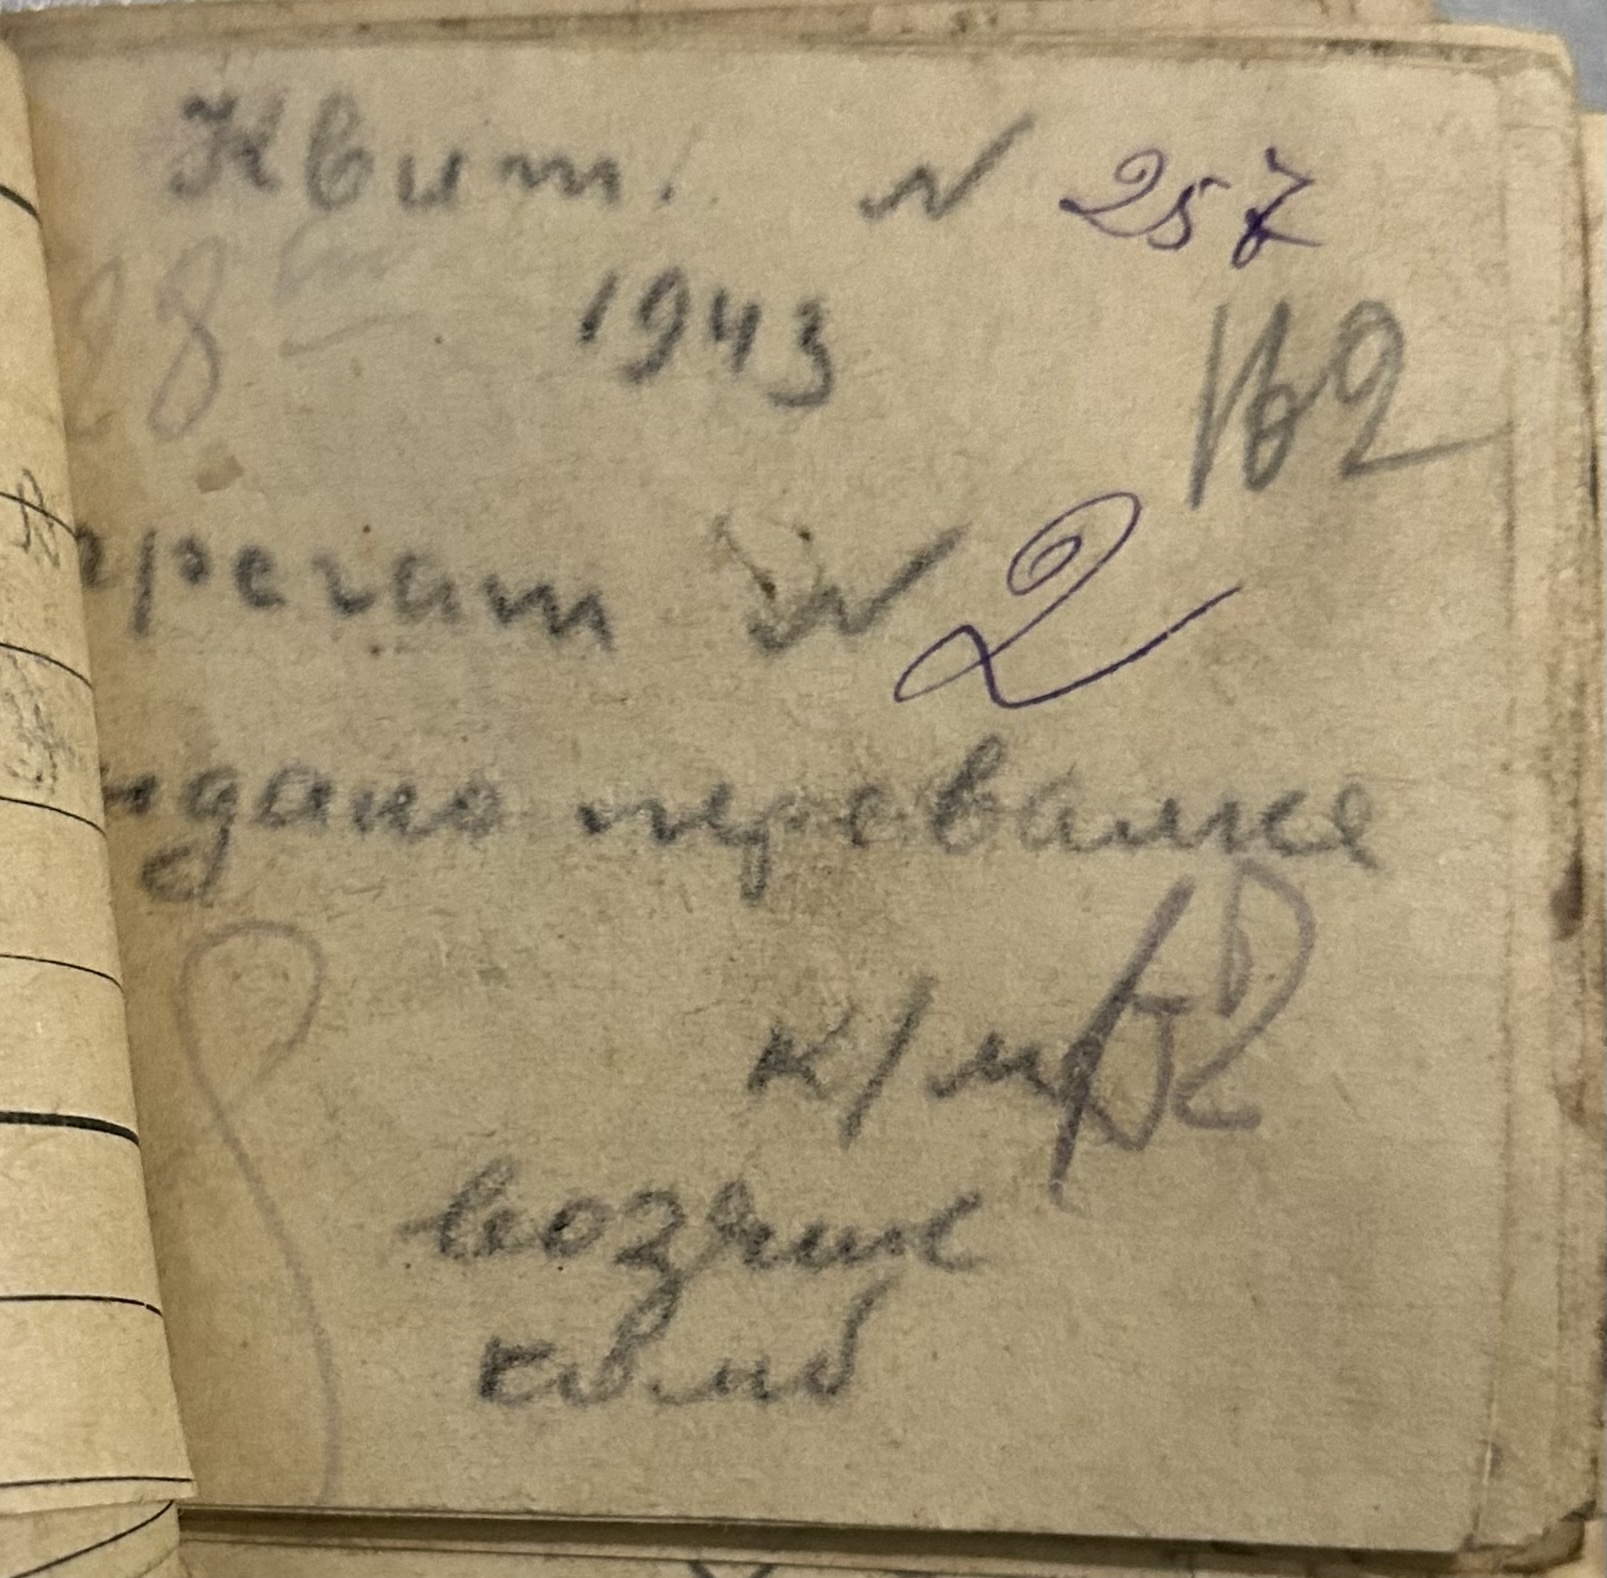 Квит. N 257
28 1943
162
грегат N 2
дано перевалке
к/м
возчик
комб